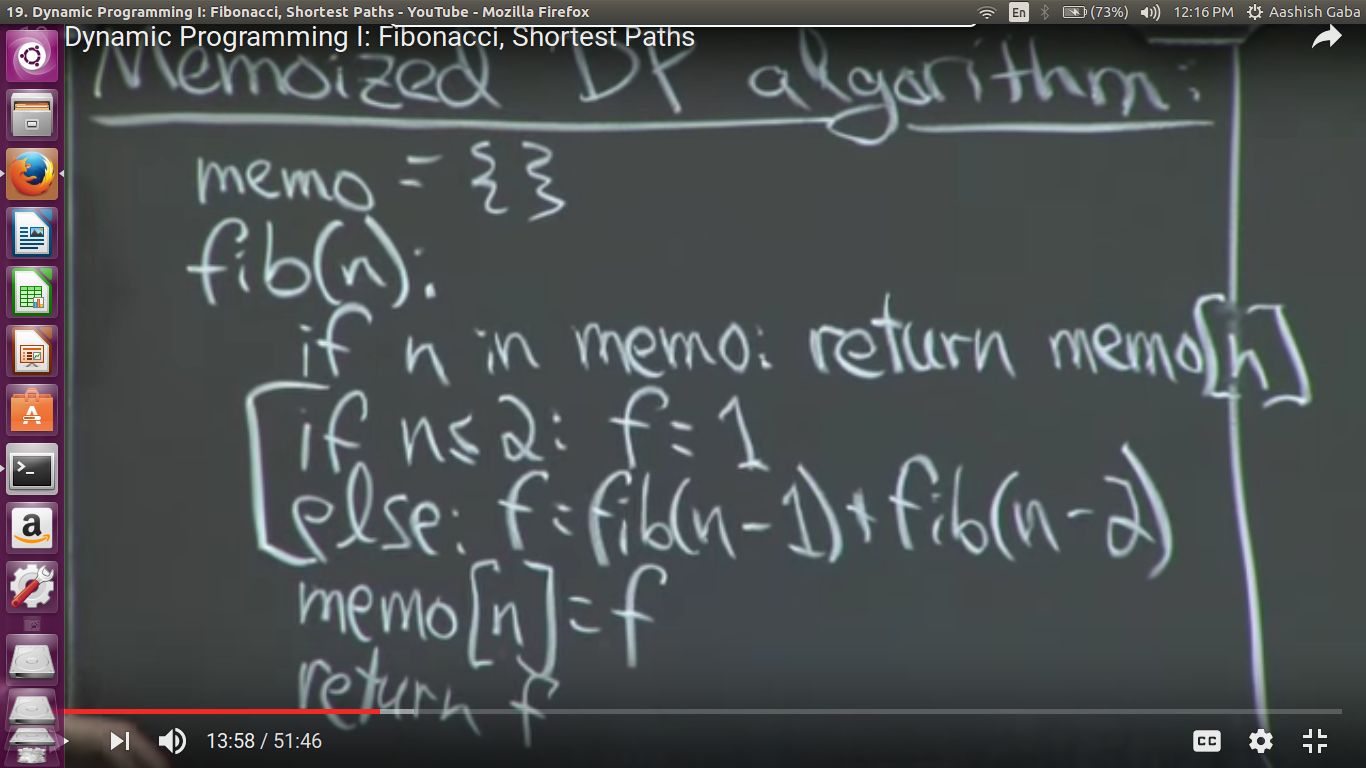 19. Dynamic Programming I: Fibonacci, Shortest Paths - YouTube - Mozilla Firefox
En
(73%)
12:16 PM
Aashish Gaba
Dynamic Programming I: Fibonacci, Shortest Paths
Memoized DP algorithm:
memo = { }
fib(n):
if n in memo: return memo[n]
if n ≤ 2: f = 1
else: f = fib(n-1) + fib(n-2)
memo[n] = f
return f
13:58 / 51:46
CC